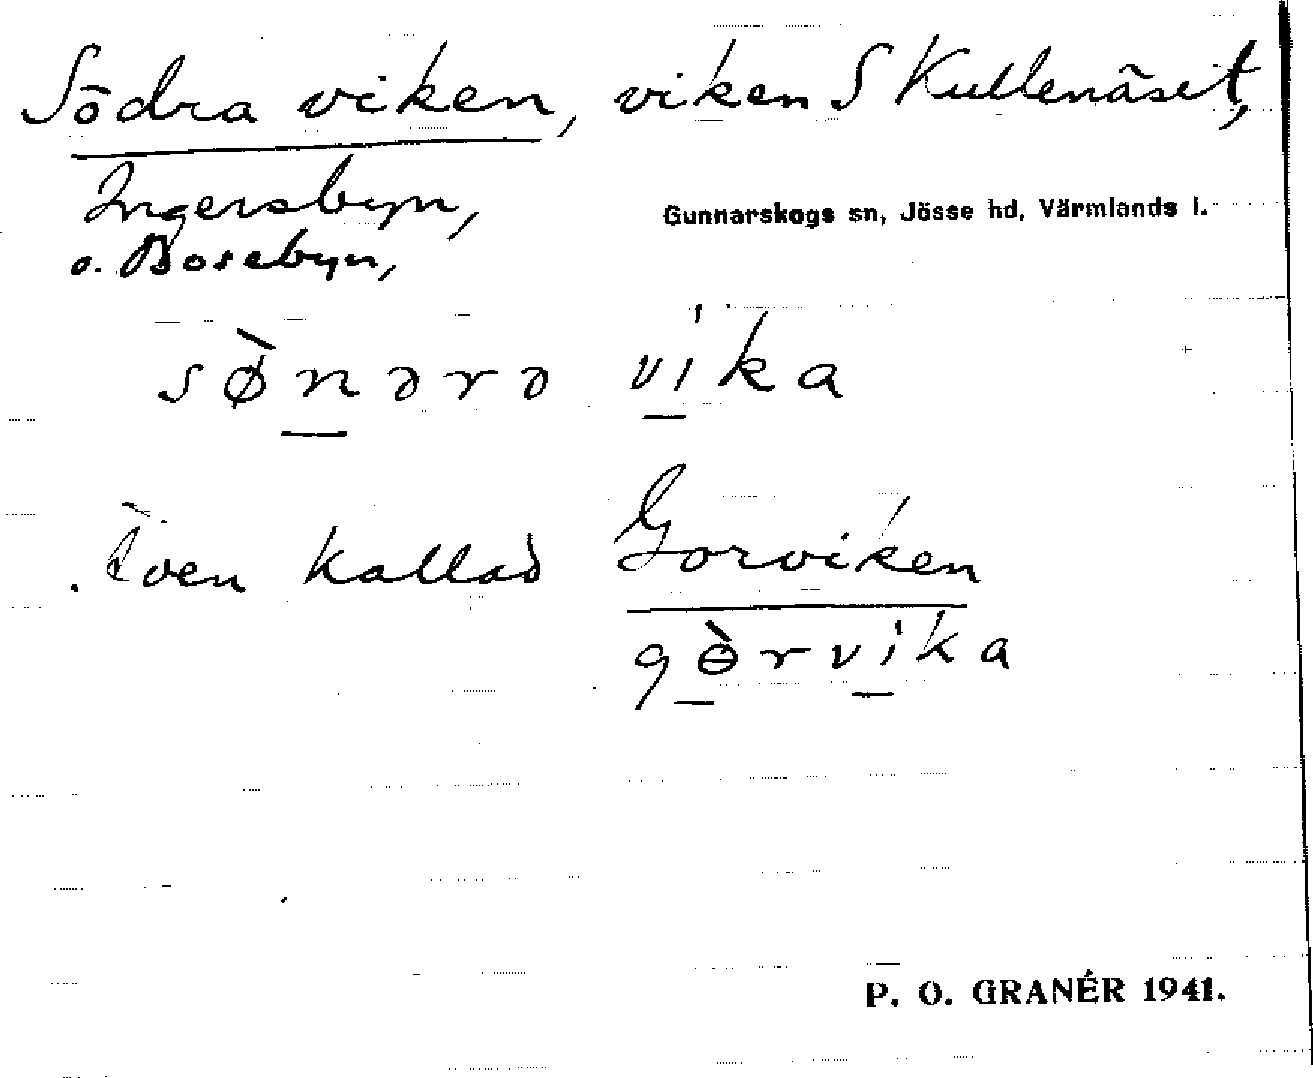 Södra viken, viken S Kullenäset,
Ingersbyn,
Gunnarskogs sn, Jösse hd, Värmlands l.
o. Bosebyn,
sø̀nərə víka
Även kallad Gorviken
gɵ̀rvíka
P. O. GRANÉR 1941.